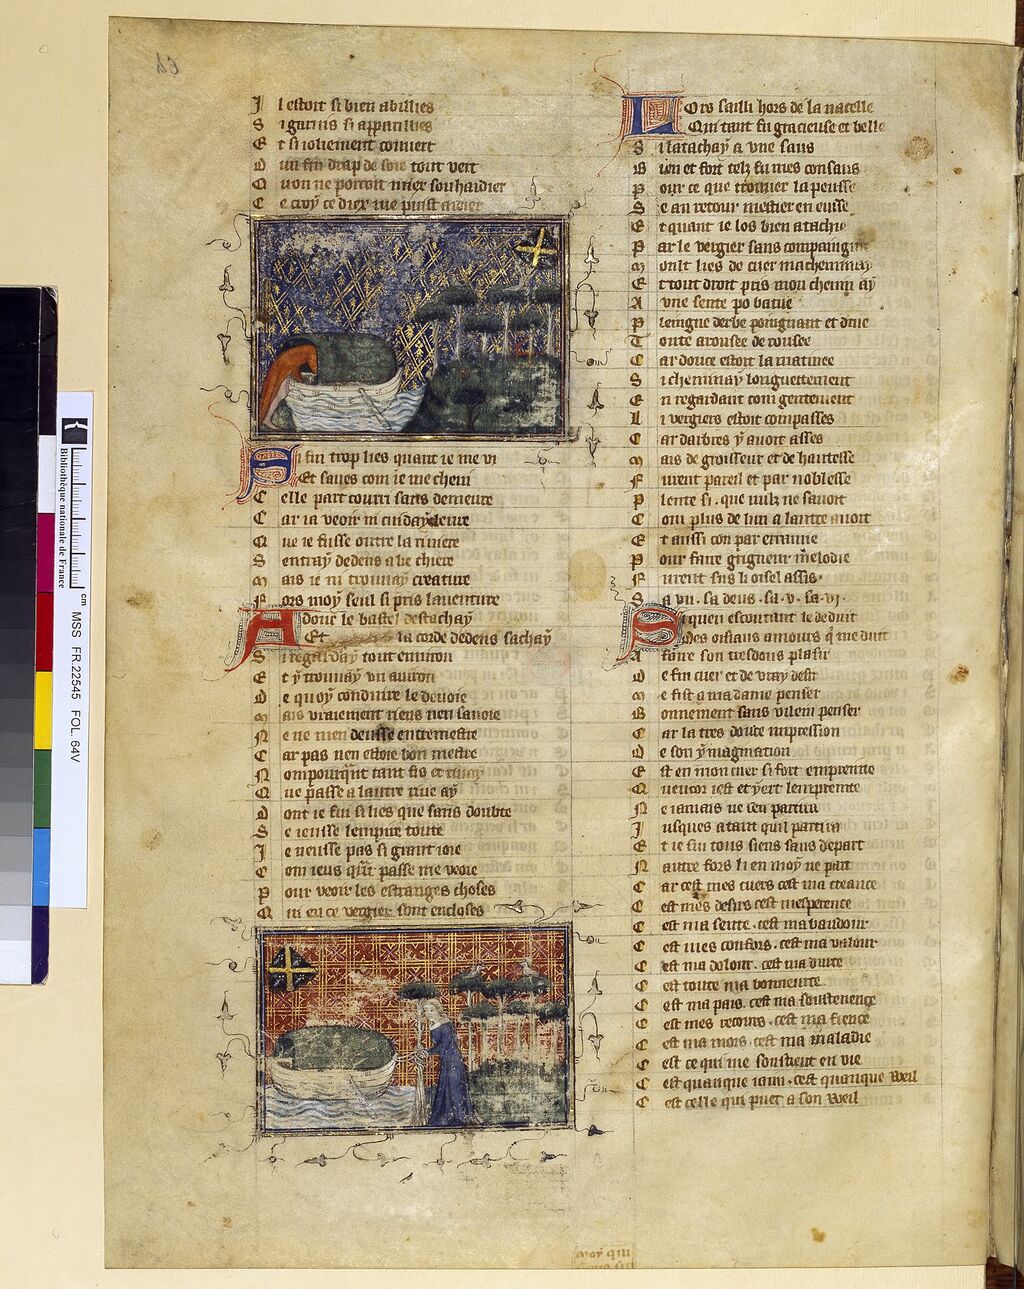 J l estoit si bien abillies
S i garnis si appareillies
E t si ioliement couuert
D un fin drap de soie tout vert
Q uon ne porroit mier souhaidier
C e croy ce diex me puist aidier
S i fui trop lies quant ie me vi
Et saues com ie me cheui
C elle part couru sans demeure
C ar ia veoir ni cuiday leure
Q ue ie fusse outre la riuiere
S entray dedens a lie chiere
M ais ie ni trouuay creature
F ors moy seul si pris lauenture
A donc le bastel destachay
Et la corde dedens sachay
S i regarday tout enuiron
E t y trouuay un auiron
D e quoy conduire le deuoie
M ais vraiement riens nen sauoie
N e ne men deusse entremettre
C ar pas nen estoie bon mettre
N ompourqnt tant fis et
Q ue passe a lautre riue ay
D ont ie fui si lies que sans doubte
S e ieusse lempire toute
J e neusse pas si grant ioie
C om ieus qnt passe me veoie
P our veoir les estranges choses
Q ui en ce vergier sont encloses
L Ors sailli hors de la nacelle
Qui tant fu gracieuse et belle
S i latachay a vne saus
B ien et fort telz fu mes consaus
P our ce que trouuer la peusse
S e au retour mestier en eusse
E t quant ie los bien atachie
P ar le vergier sans
M oult lies de cuer macheminay
E t tout droit pris mon chemin ay
A vne sente po batue
P leingne derbe poingnant et drue
T oute arousee de rousee
C ar douce estoit la matinee
S i cheminay longuettement
E n regardant com gentement
L i vergiers estoit compasses
C ar darbres y auoit asses
M ais de grosseur et de hautesse
F urent pareil et par noblesse
P lente si. que nulz ne sauoit
C om plus de lun a lautre auoit
E t aussi con par
P our faire grigneur melodie
F urent sus li oisel assis.
S a vn. sa deus. sa. v. sa. vi.
S i quen escoutant le deduit
Des oisiaus amours q me duit
A faire son tresdous plaisir
D e fin cuer et de vray desir
M e fist a ma dame penser
B onnement sans vilein penser
C ar la tres douce impression
D e son ymagination
E st en mon cuer si fort empreinte
Q uencor iest et yert lempreinte
N e iamais ne sen partira
J usques atant quil partira
E t ie sui tous siens sans depart
N autre fors li en moy ne part
C ar cest mes cuers cest ma creance
C est mes desirs cest mesperance
C est ma sente. cest ma baudour
C est mes confors. cest ma valour
C est ma dolour. cest ma durte
C est toute ma bonneurte.
C est ma pais. cest ma soustenence
C est mes retours. cest ma fience
C est ma mors cest ma maladie
C est ce qui me soustient en vie
C est quanque iaim. cest quanque weil
C est celle qui puet a son weil
moy qui
64
Bibliothèque nationale de France
cm
MSS FR.22545 FOL. 64V